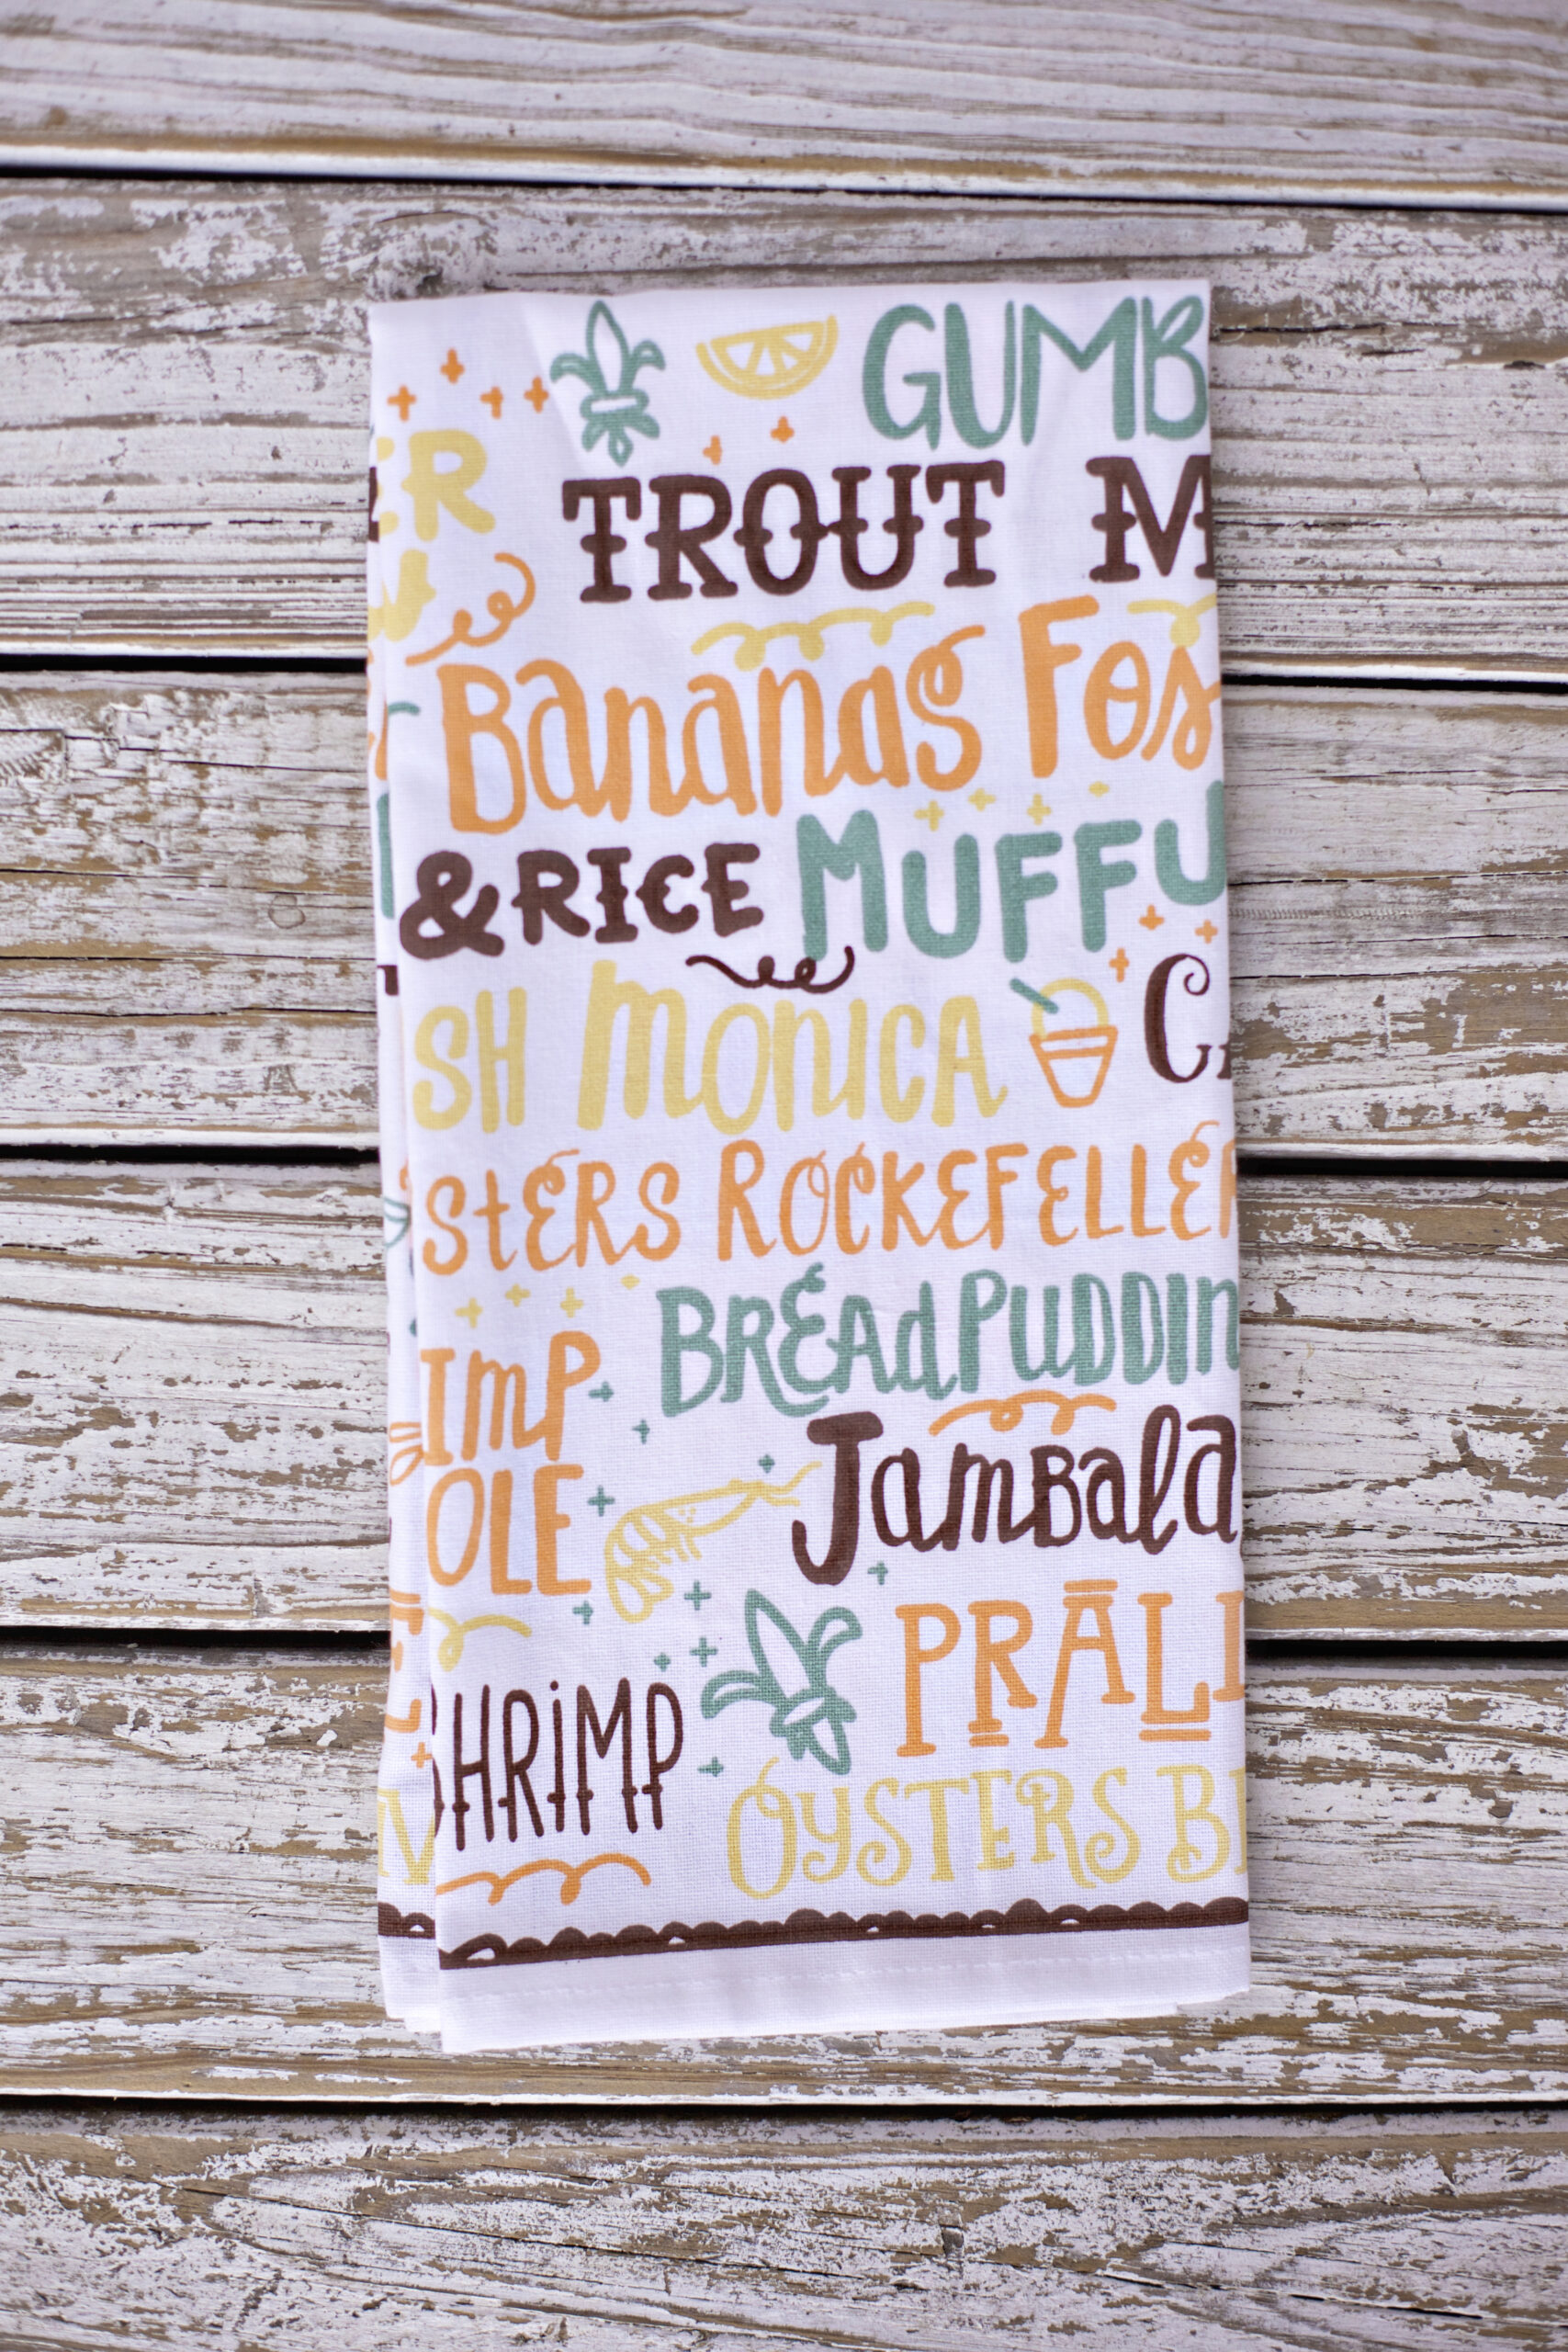 GUMB
ER
TROUT M
BANANAS FOS
& RICE MUFFU
SH MONICA C
STERS ROCKEFELLER
BREAD PUDDIN
IMP
JAMBALA
OLE
PRALI
SHRIMP
OYSTERS B